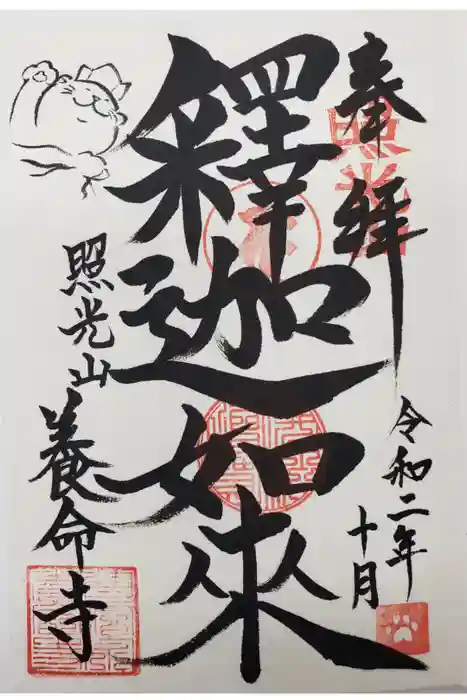 奉拝
照光
令和二年
十月
釋迦如來
照光山
養命寺